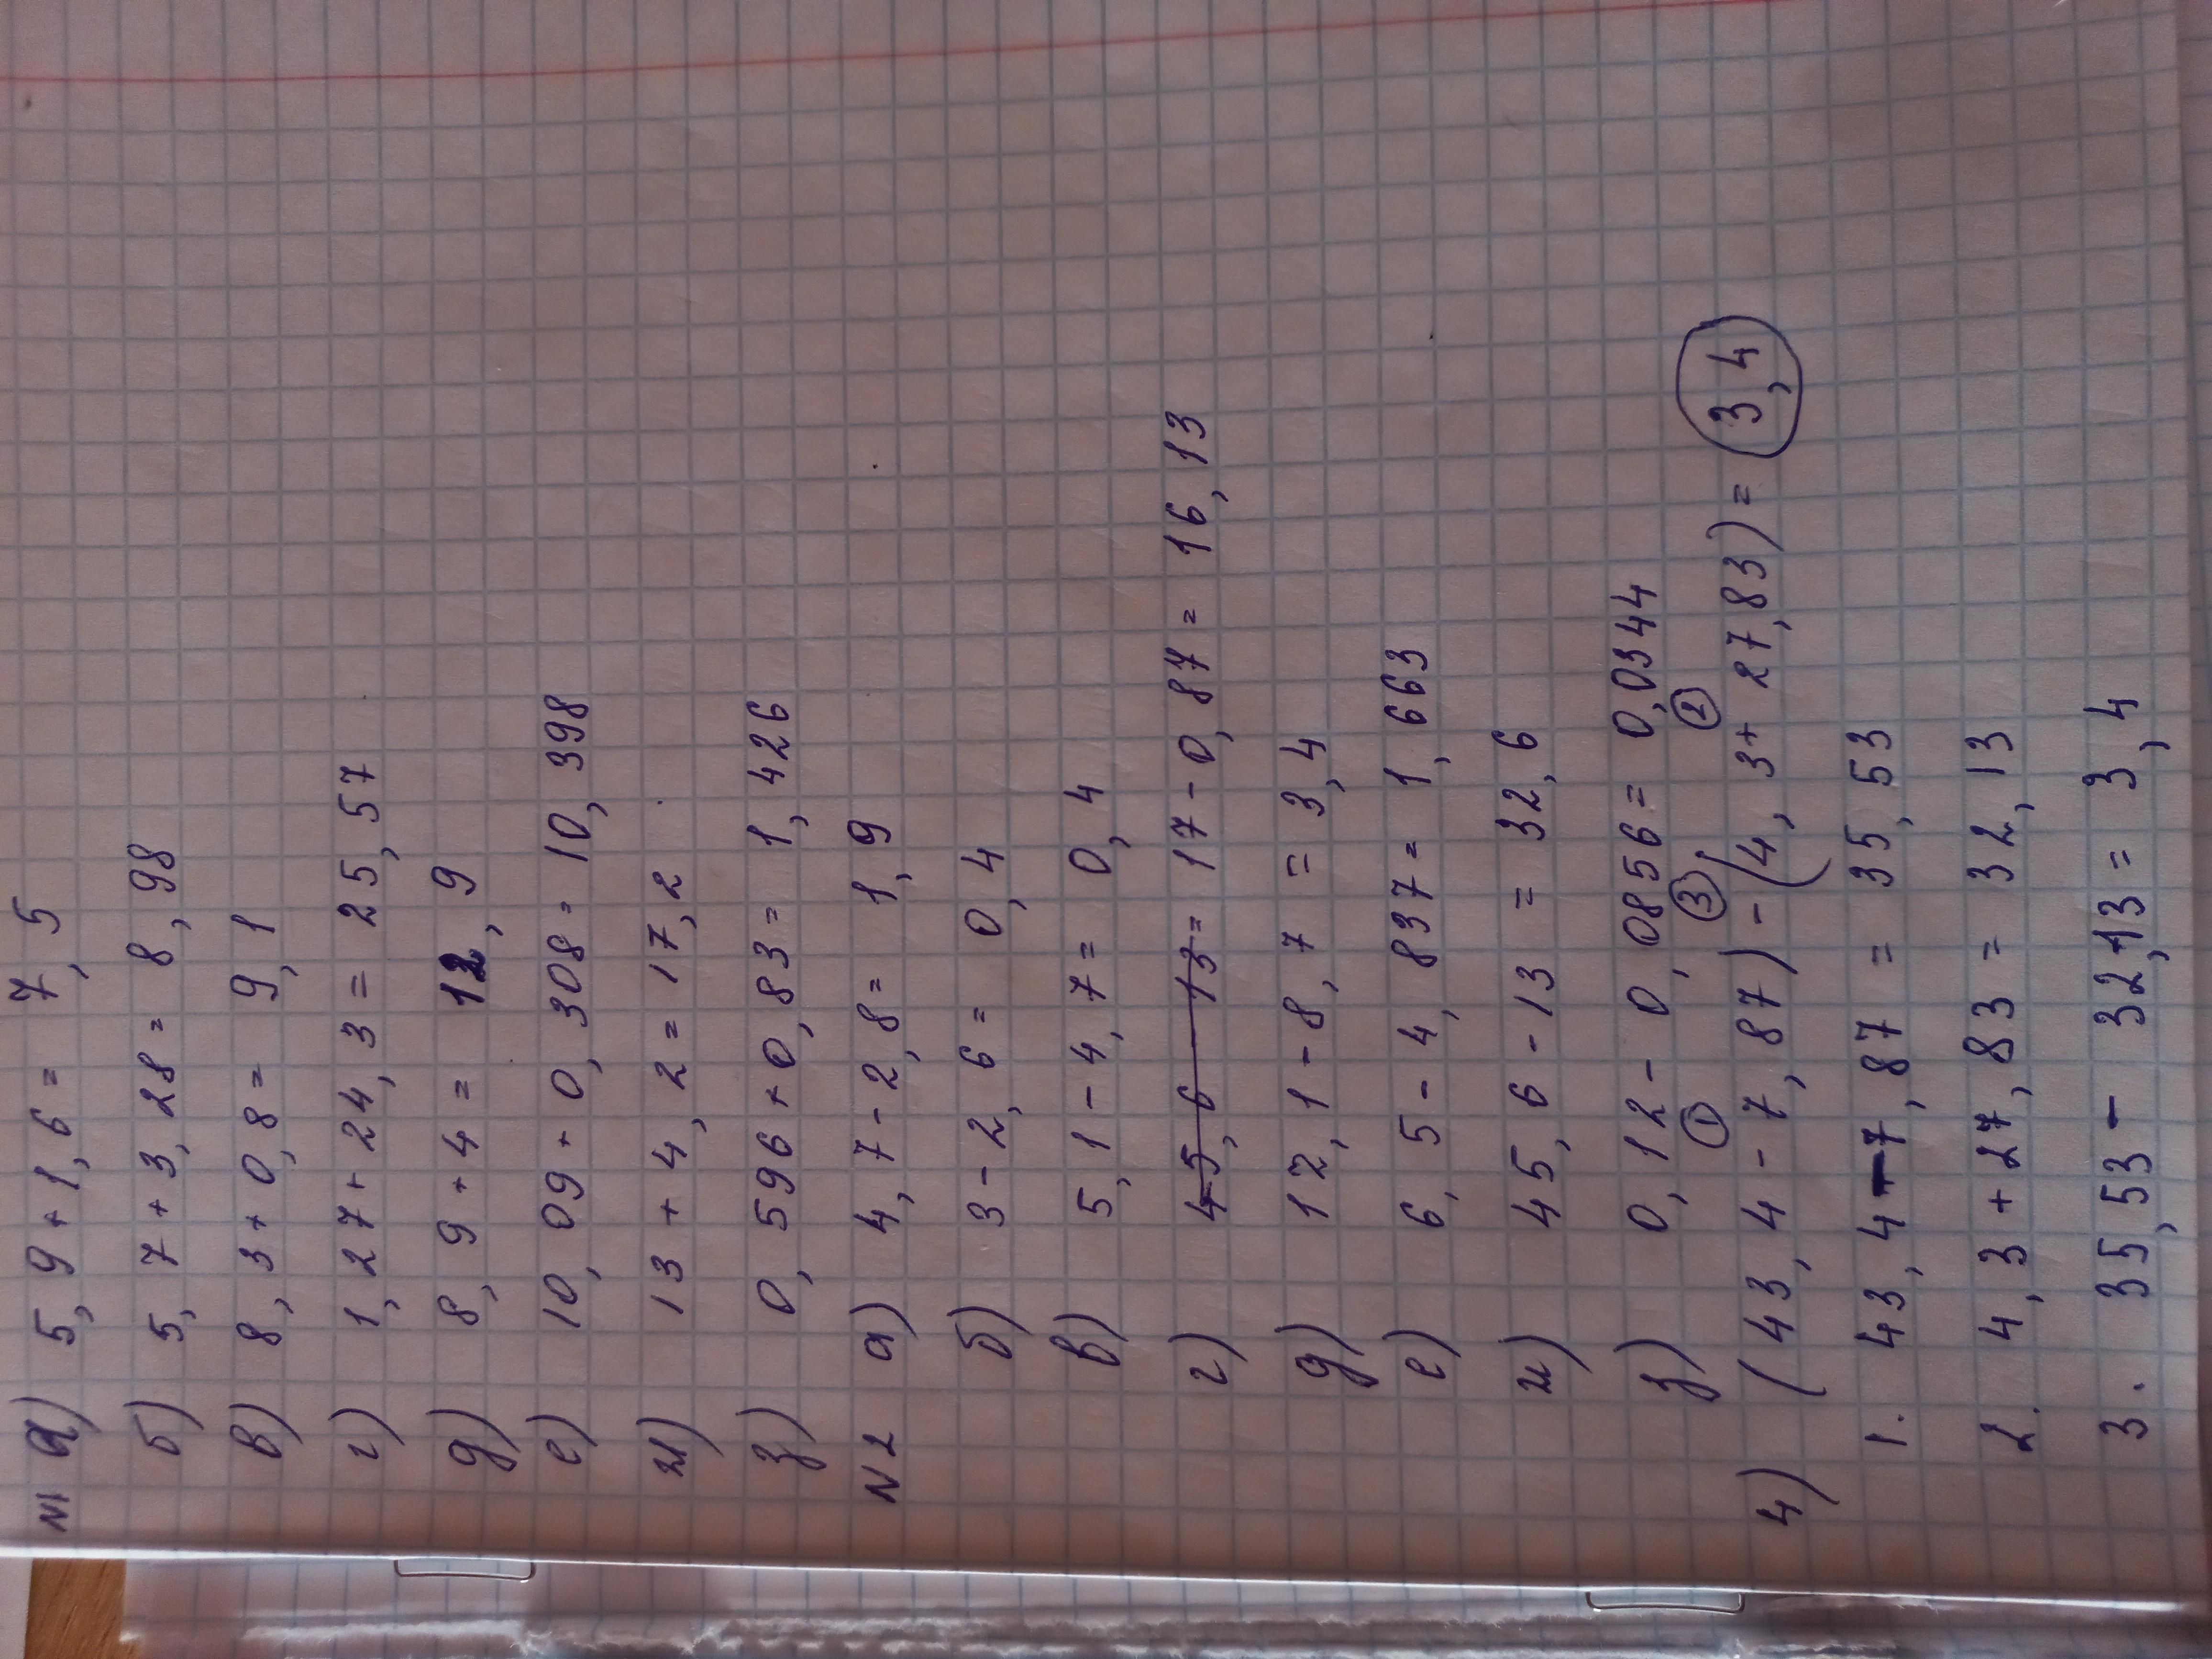 N1 а) 5,9+1,6= 7,5
б) 5,7+3,28= 8,98
в) 8,3+0,8= 9,1
г) 1,27+24,3= 25,57
д) 8,9+4= 12,9
е) 10,09+0,308= 10,398
ж) 13+4,2=17,2
з) 0,596+0,83= 1,426
N2 а) 4,7-2,8= 1,9
б) 3-2,6= 0,4
в) 5,1-4,7= 0,4
г) 45,6-13= 17-0,87= 16,13
д) 12,1-8,7=3,4
е) 6,5-4,837= 1,663
ж) 45,6-13= 32,6
з) 0,12-0,0856= 0,0344
1 3 2
4) (43,4-7,87)-(4,3+27,83)= 3,4
1. 43,4-7,87= 35,53
2. 4,3+27,83= 32,13
3. 35,53-32,13= 3,4